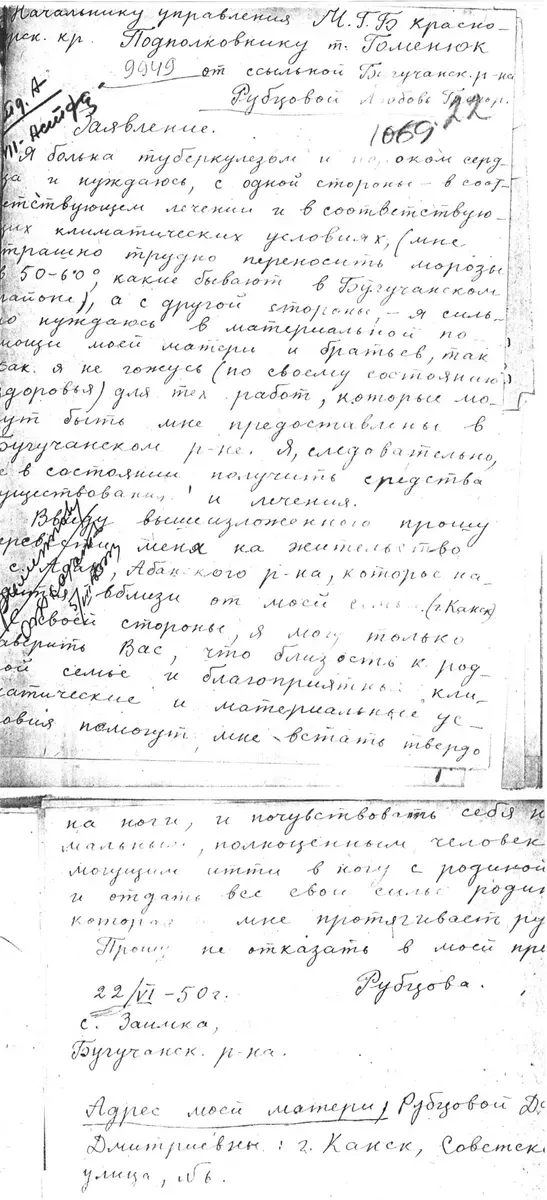 Начальнику управления М.Г.Б красно-
рск. кр. Подполковнику т. Гоменюк
9949 от ссыльной Бугучанск. р-на
Рубцовой Любовь
1069 22
Заявление.
Я больна туберкулезом и пороком серд-
ца и нуждаюсь, с одной стороны – в соот-
етствующем лечении и в соответствую-
щих климатических условиях, (мне
трашно трудно переносить морозы
в 50-60°, какие бывают в Бугучанском
районе), а с другой стороны, – я силь-
но нуждаюсь в материальной по
мощи моей матери и братьев, так
как я не гожусь (по своему состоянию
здоровья) для тех работ, которые мо-
гут быть мне предоставлены в
Бугучанском р-не. Я, следовательно,
е в состоянии получить средства
уществования и лечения.
Ввиду вышеизложенного прошу
перевести меня на жительство
с. Абан, Абанского р-на, которое на-
вблизи от моей семьи (г. Канск)
своей стороны, я могу только
аверить Вас, что близость к род-
ной семье и благоприятный кли-
матические и материальные ус-
ловия помогут мне встать твердо
на ноги, и почувствовать себя н
мальным, полноценным человек
могущим итти в ногу с родиной
и отдать все свои силы родин
которая мне протягивает ру
Прошу не отказать в моей пр
22/VI-50 г. Рубцова.
с. Заимка,
Бугучанск. р-на.
Адрес моей матери, Рубцовой
Дмитриевны: г. Канск, Советск
улица,